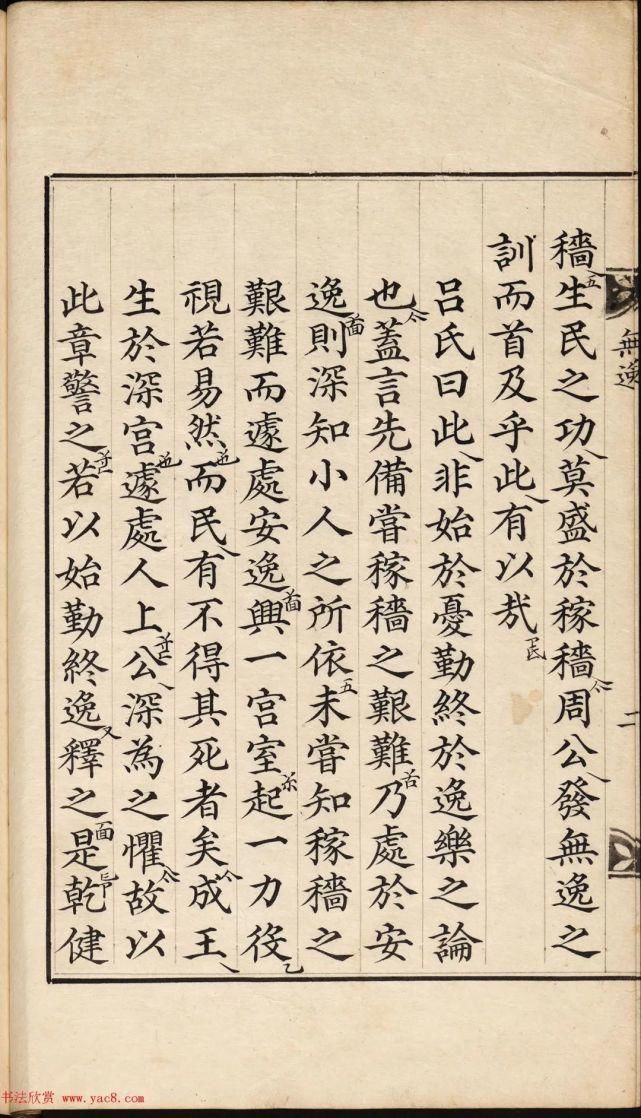 無逸
二
穡生民之功莫盛於稼穡周公發無逸之
訓而首及乎此有以㢤
呂氏曰此非始於憂勤終於逸樂之論
也蓋言先備嘗稼穡之艱難乃處於安
逸則深知小人之所依未嘗知稼穡之
艱難而遽處安逸興一宮室起一力役
視若易然而民有不得其死者矣成王
生於深宮遽處人上公深為之懼故以
此章警之若以始勤終逸釋之是乾健
书法欣赏 www.yac8.com